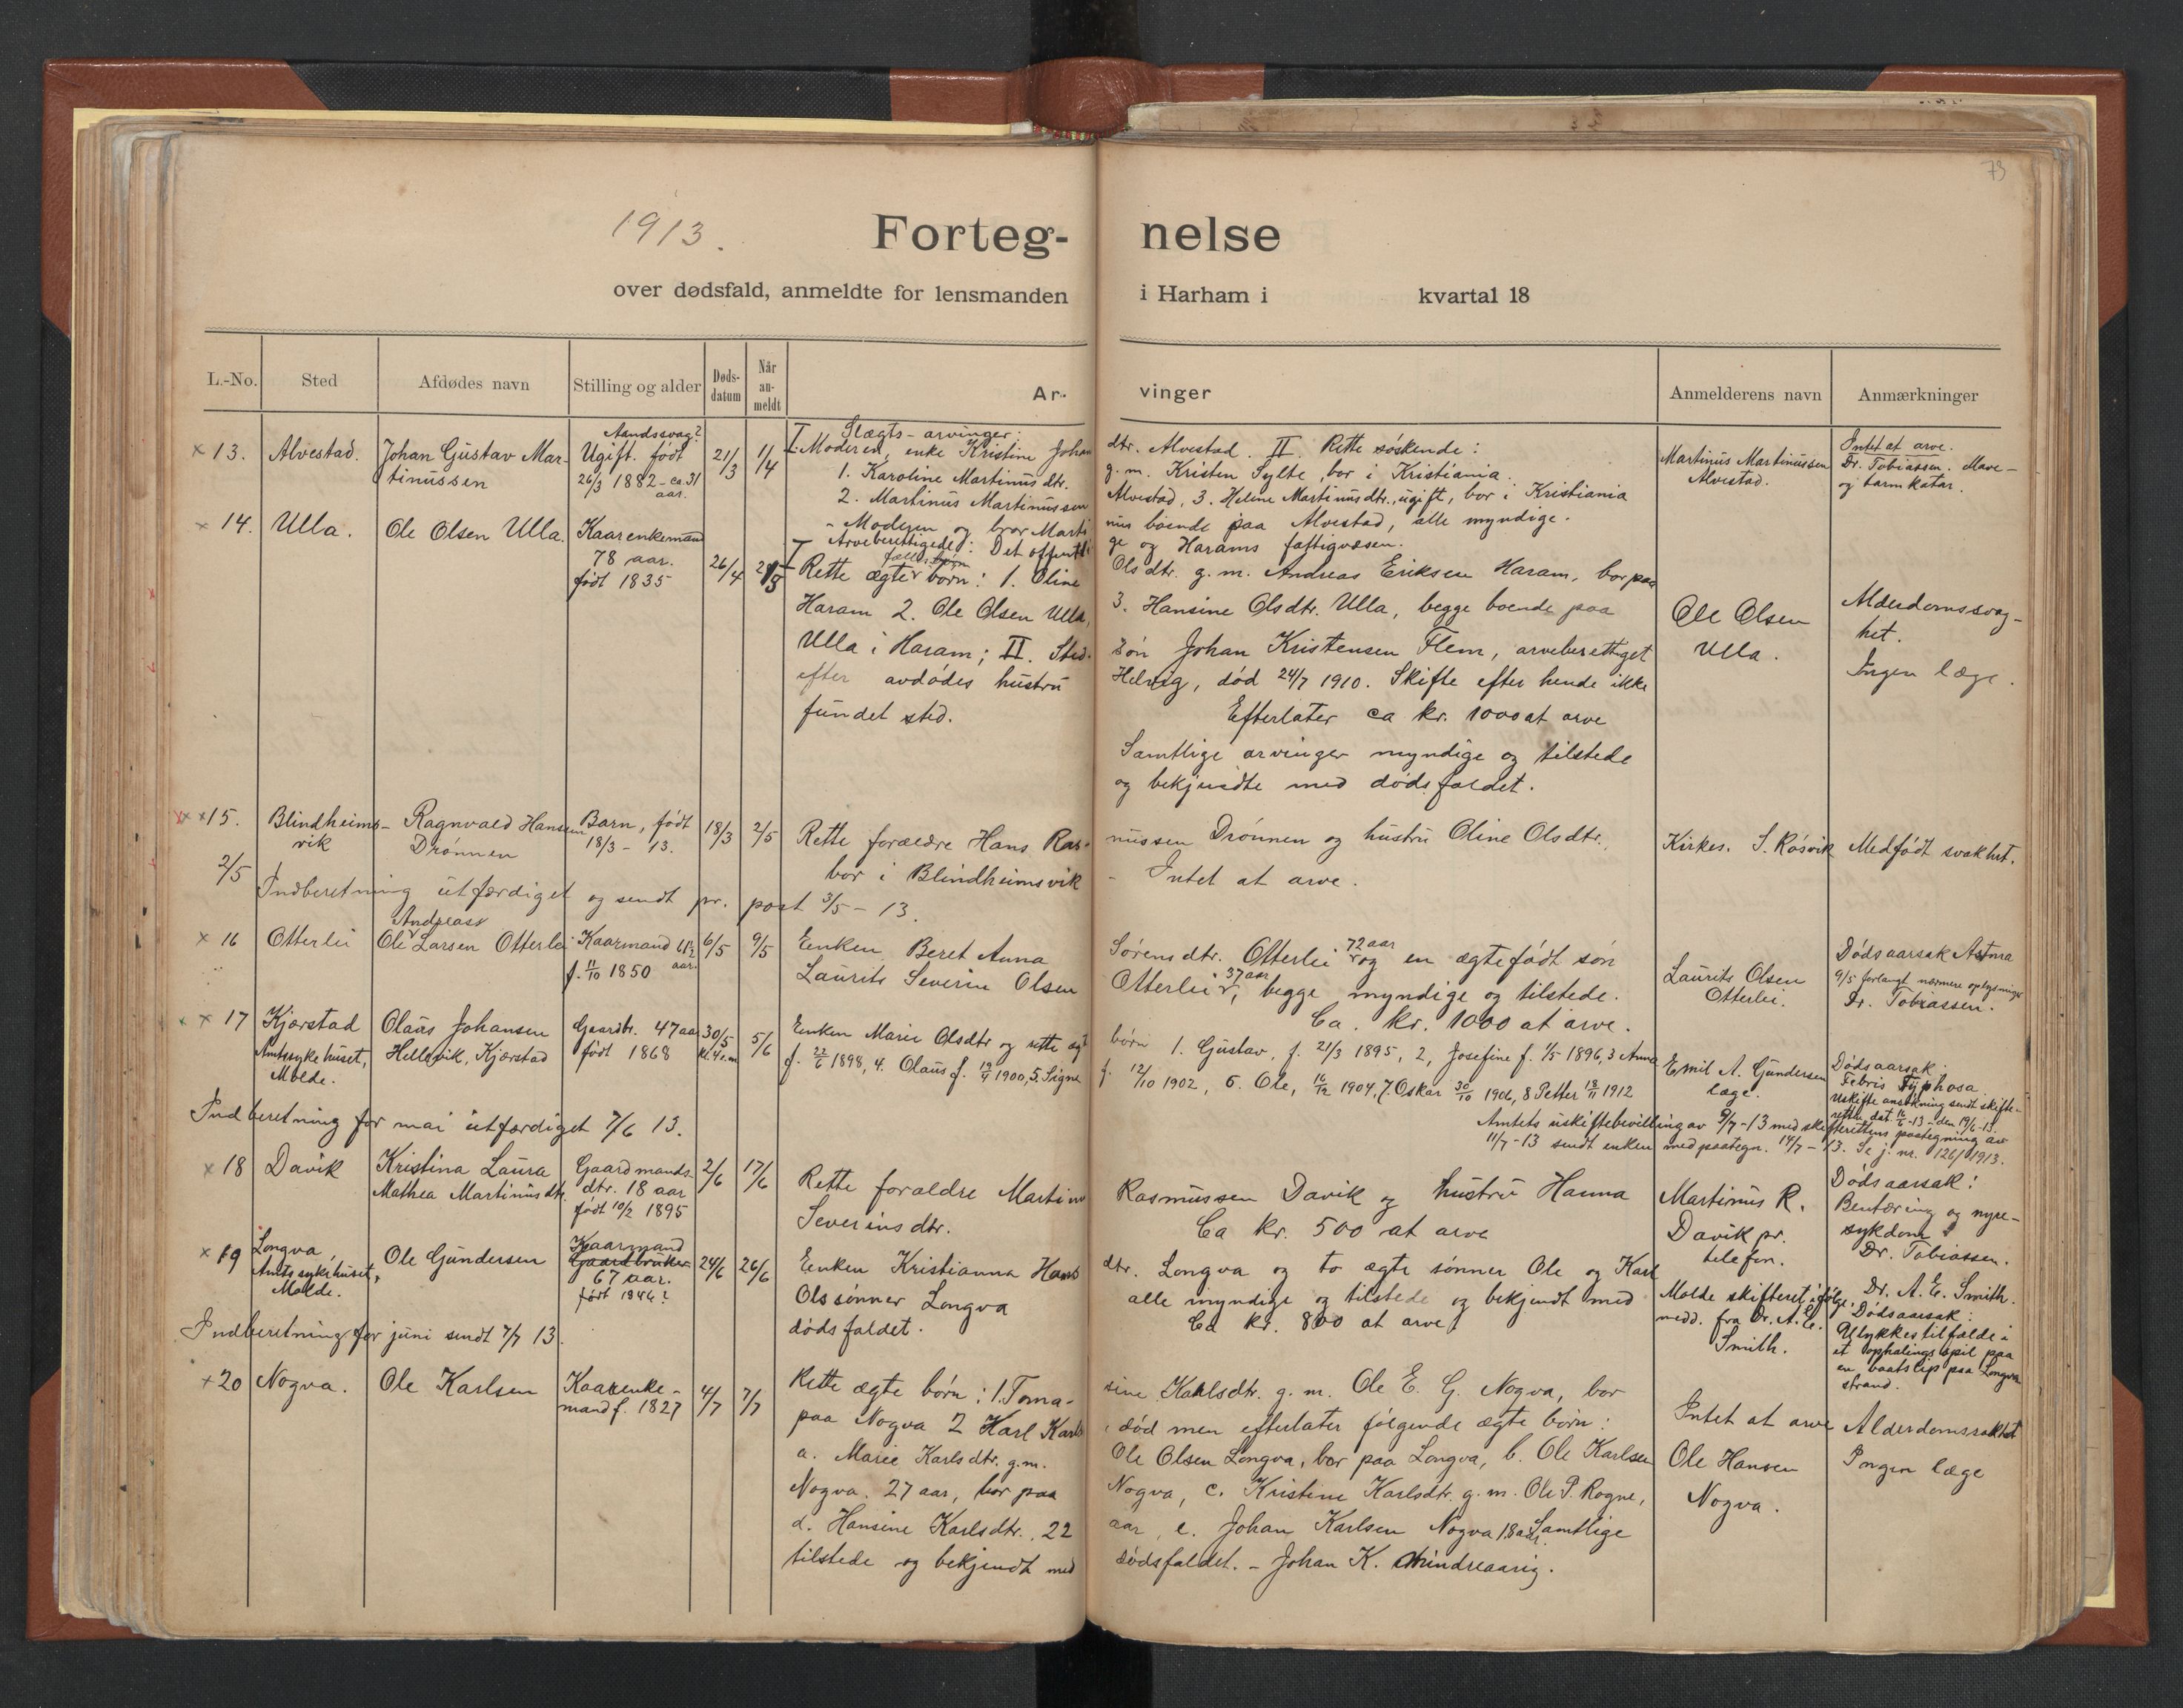 73
1913.
Forteg- nelse
over dødsfald, anmeldte for lensmanden i Harham i kvartal 18
L.-No. Sted Afdødes navn Stilling og alder Døds-datum Når an-meldt Ar- vinger Anmelderens navn Anmærkninger
x 13. Alvestad. Johan Gustav Mar-
tinussen
Aandssvag?
Ugift. født
26/3 1882 - ca. 31
aar.
21/3 11/4
Slægts-arvinger:
I. Moderen, enke Kristine Johan dtr. Alvestad. II. Rette søskende:
1. Karoline Martinusdtr. g.m. Kristen Sylte, bor i Kristiania.
2. Martinus Martinussen Alvestad, 3. Heline Martinusdtr., ugift, bor i Kristiania
- Moderen og bror Marti nus boende paa Alvestad, alle myndige.
Arveberettigede: Det offentli ge og Harams fattigvæsen.
Martinus Martinussen
Alvestad.
Intet at arve.
Dr. Tobiassen. Mave-
og tarmkatar.
x 14. Ulla. Ole Olsen Ulla. Kaarenkemand
78 aar.
født 1835
26/4 2/5
fælles børn
I Rette ægte børn: 1. Oline Olsdtr. g.m. Andreas Eriksen Haram, bor paa
Haram 2. Ole Olsen Ulla, 3. Hansine Olsdtr. Ulla, begge boende paa
Ulla i Haram; II. Sted- søn Johan Kristensen Flem, arveberettiget
efter avdødes hustru Helvig, død 24/7 1910. Skifte efter hende ikke
fundet sted. Efterlater ca kr. 1000 at arve
Samtlige arvinger myndige og tilstede
og bekjendte med dødsfaldet.
Ole Olsen
Ulla.
Alderdomssvag-
het.
Ingen læge.
x x 15. Blindheims-
vik
Ragnvald Hansen
Drønnen
Barn, født
18/3 - 13.
18/3 2/5
Rette forældre Hans Ras- mussen Drønnen og hustru Oline Olsdtr.,
bor i Blindheimsvik - Intet at arve.
Kirkes. S. Røsvik Medfødt svakhet.
2/5 Indberetning utfærdiget og sendt pr. post 3/5 - 13.
x 16 Otterlei
Andreas
Ole Larsen Otterlei Kaarmand 62½
f. 11/10 1850 aar.
6/5 9/5
Enken Beret Anna Sørensdtr. Otterlei 72 aar og en ægtefødt søn
Laurits Severin Olsen Otterlei 37 aar, begge myndige og tilstede.
Ca. kr. 1000 at arve.
Laurits Olsen
Otterlei.
Dødsaarsak Astma
9/5 forlangt nærmere oplysninger
Dr. Tobiassen.
x x 17 Kjærstad
Amtssykehuset,
Molde.
Olaus Johansen
Hellevik, Kjærstad
Gaardbr. 47 aar
født 1868
30/5
kl. 4 e.m
5/6
Enken Marie Olsdtr og rette ægte børn 1. Gustav, f. 21/3 1895, 2, Josefine f. 1/5 1896, 3 Anna
f. 22/6 1898, 4. Olaus f. 19/4 1900, 5. Signe f. 12/10 1902, 6. Ole, 16/12 1904, 7. Oskar 30/10 1906, 8 Petter 18/11 1912
Emil A. Gundersen
læge.
Dødsaarsak:
Febris Typhosa
Uskifte ansøkning sendt skifte-
retten dat. 16/6-13 - den 19/6-13.
Indberetning for mai utfærdiget 7/6 13.
Amtets uskiftebevilling av 9/7-13 med skifterettens paategning av
11/7-13 sendt enken med paategn. 14/7-13. Se j. nr. 126/1913.
x 18 Davik Kristina Laura
Mathea Martinusdtr.
Gaardmands-
dtr. 18 aar
født 10/2 1895
2/6 17/6
Rette forældre Martinus Rasmussen Davik og hustru Hanna
Severinsdtr. Ca kr. 500 at arve
Martinus R.
Davik pr.
telefon.
Dødsaarsak:
Bentæring og nyre-
sykdom
Dr. Tobiassen.
x 19 Longva,
Amtssykehuset,
Molde.
Ole Gundersen
Kaarmand
Gaardbruker
67 aar.
født 1846?
24/6 26/6
Enken Kristianna Hans dtr. Longva og to ægte sønner Ole og Karl
Olssønner Longva alle myndige og tilstede og bekjendt med
dødsfaldet. Ca kr. 800 at arve
Molde skifteret ifølge
medd. fra Dr. A. E.
Smith.
Dr. A. E. Smith.
Dødsaarsak:
Ulykkestilfælde i
et ophalingsspil paa
en baatslip paa Longva
strand.
Indberetning for juni sendt 7/7 13.
x 20 Nogva. Ole Karlsen Kaarenke-
mand f. 1827
4/7 7/7
Rette ægte børn: 1. Toma- sine Karlsdtr. g.m. Ole E. G. Nogva, bor
paa Nogva 2 Karl Karls , død men efterlater følgende ægte børn:
a. Marie Karlsdtr. g.m. Ole Olsen Longva, bor paa Longva, b. Ole Karlsen
Nogva. 27 aar, bor paa Nogva, c. Kristine Karlsdtr. g.m. Ole P. Rogne,
d. Hansine Karlsdtr. 22 aar, e. Johan Karlsen Nogva 18 aar. Samtlige
tilstede og bekjendt med dødsfaldet. - Johan K. mindreaarig.
Intet at arve
Ole Hansen
Nogva.
Alderdomssvakhet
Ingen læge